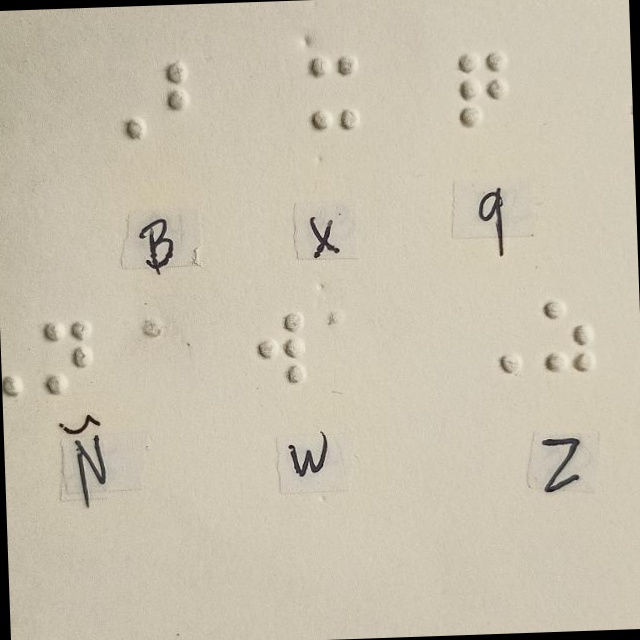 ⠠⠃ ⠭ ⠟
B x q
⠠⠝ ⠺ ⠠⠵
Ñ W Z